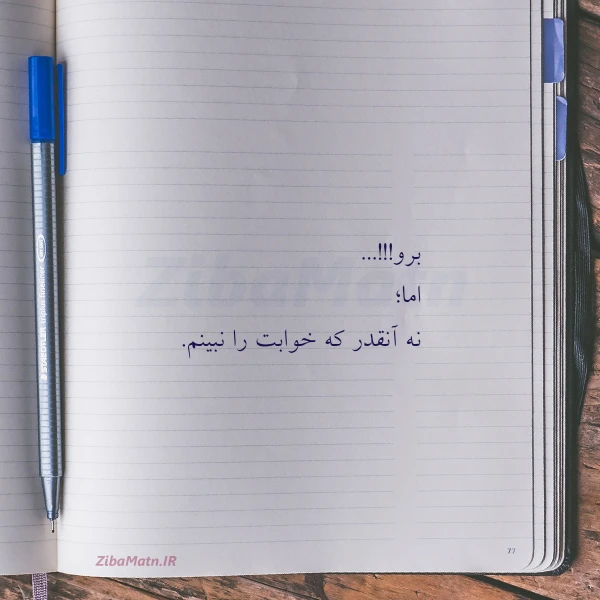 برو!!!...
اما؛
نه آنقدر که خوابت را نبینم.
ZibaMatn
ZibaMatn.IR